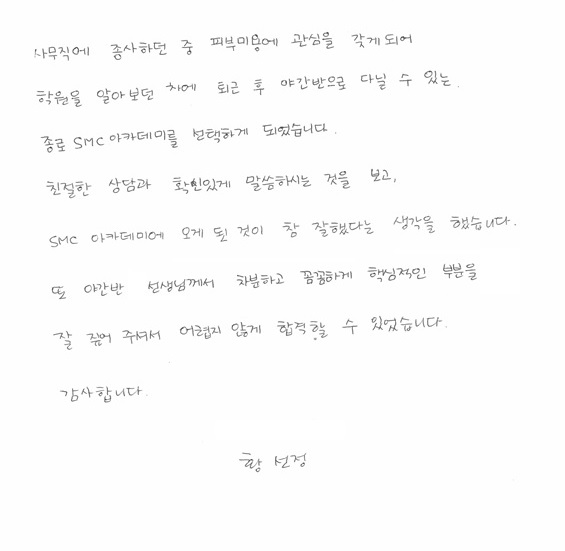 사무직에 종사하던 중 피부미용에 관심을 갖게되어
학원을 알아보던 차에 퇴근 후 야간반으로 다닐 수 있는
종로 SMC 아카데미를 선택하게 되었습니다.
친절한 상담과 확신있게 말씀하시는 것을 보고,
SMC 아카데미에 오게 된 것이 참 잘했다는 생각을 했습니다.
또 야간반 선생님께서 차분하고 꼼꼼하게 핵심적인 부분을
잘 짚어 주셔서 어렵지 않게 합격할 수 있었습니다.
감사합니다.
황 선정